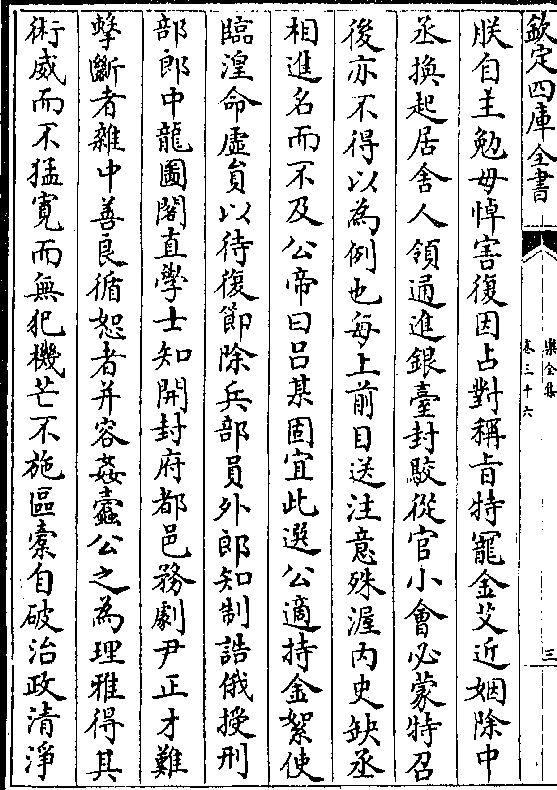 欽定四庫全書
樂全集
卷三十六
三
朕自主勉毋悼害復因占對稱旨特寵金艾近姻除中
丞換起居舍人領通進銀臺封駮從官小會必蒙特召
後亦不得以為例也每上前目送注意殊渥内史缺丞
相進名而不及公帝曰吕某固宜此選公適持金絮使
臨湟命虛員以待復節除兵部員外郎知制誥俄授刑
部郎中龍圖閣直學士知開封府都邑務劇尹正才難
擊斷者雜中善良循恕者并容姦蠹公之為理雅得其
術威而不猛寛而無犯機芒不施區橐自破治政清淨